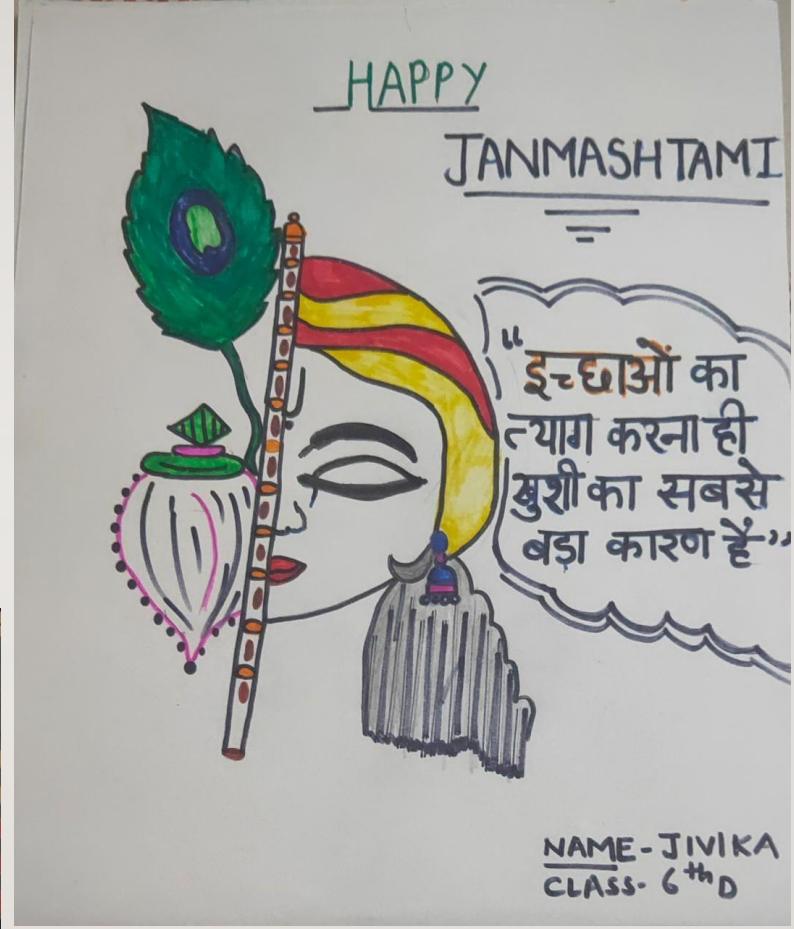 HAPPY
JANMASHTAMI
"इच्छाओं का
त्याग करना ही
खुशी का सबसे
बड़ा कारण हैं"
NAME-JIVIKA
CLASS- 6th D